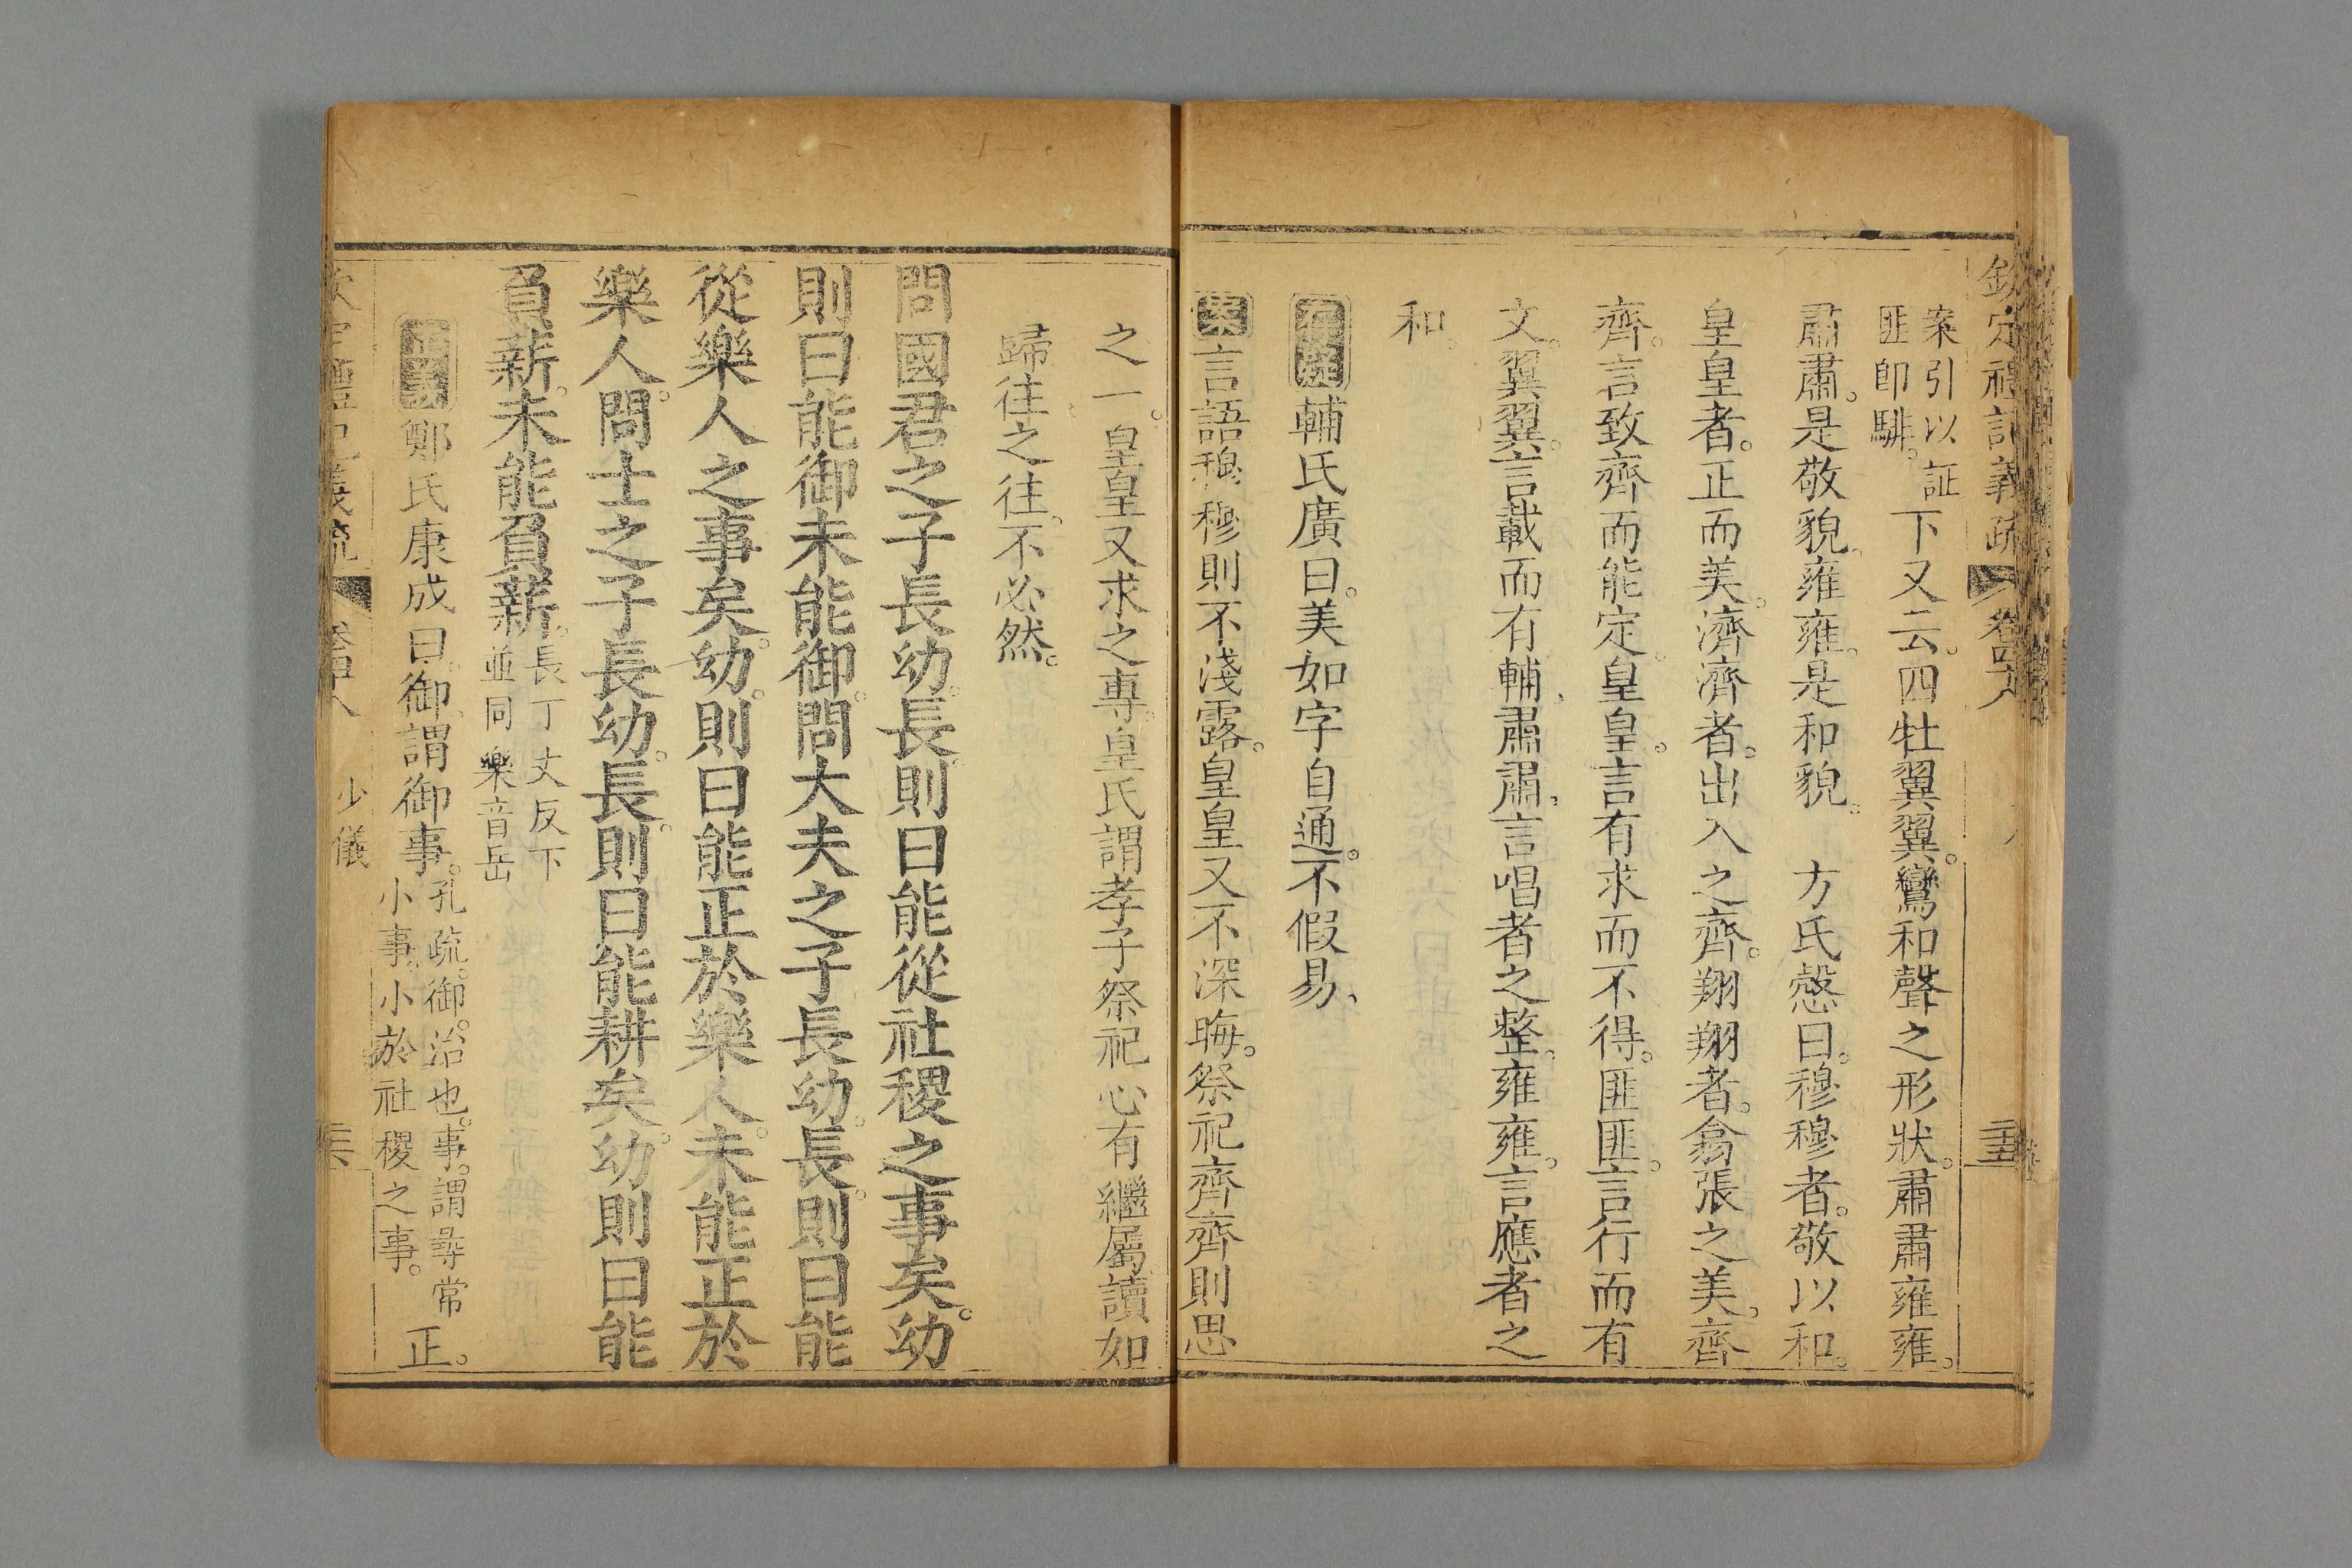 欽定禮記義疏 卷四十八
案引以証
匪卽騑。
下又云。四牡翼翼。鸞和聲之形狀。肅肅雍雍。
肅肅。是敬貌。雍雍。是和貌。 方氏慤曰。穆穆者。敬以和。
皇皇者。正而美。濟濟者。出入之齊。翔翔者。翕張之美。齊
齊。言致齊而能定。皇皇。言有求而不得。匪匪。言行而有
文。翼翼。言載而有輔、肅肅、言唱者之整、雍雍。言應者之
和。
輔氏廣曰。美如字自通。不假易、
案言語穆穆則不淺露。皇皇又不深晦。祭祀齊齊則思
之一。皇皇又求之專。皇氏謂孝子祭祀心有繼屬讀如
歸往之往。不必然。
問國君之子長幼。長則曰能從社稷之事矣。幼
則曰能御未能御。問大夫之子長幼。長。則曰能
從樂人之事矣。幼。則曰能正於樂人。未能正於
樂人。問士之子長幼。長。則曰能耕矣。幼則曰能
負薪。未能負薪。
長丁丈反下
並同樂音岳
鄭氏康成曰。御。謂御事。
孔疏。御。治也。事。謂尋常
小事。小於社稷之事。
正。
少儀